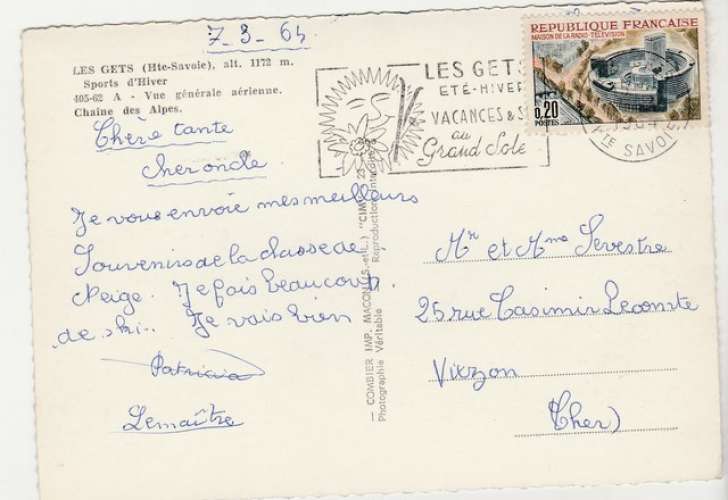 7-3-64
LES GETS (Hte-Savoie), alt. 1172 m.
Sports d'Hiver
405-62 A - Vue générale aérienne.
Chaîne des Alpes.
Chère tante
cher oncle
Je vous envoie mes meilleurs
souvenirs de la classe de
Neige. Je fais beaucoup
de ski. Je vais bien
Patricia
Lemaître
LES GETS
ÉTÉ-HIVER
VACANCES & S
au
Grand Sole
REPUBLIQUE FRANÇAISE
MAISON DE LA RADIO-TÉLÉVISION
0,20
POSTES
TE SAVOIE
— COMBIER IMP. MACON (S.-et-L.) "CIM"
Photographie Véritable
Reproduction
Mr et Mme Sevestre
25 rue Casimir Lecomte
Vixzon
Cher)